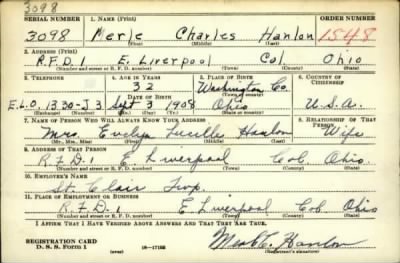 3098
SERIAL NUMBER 1. NAME (Print) ORDER NUMBER
3098 Merle Charles Hanlon 1548
(First) (Middle) (Last)
2. ADDRESS (Print)
R.F.D. 1 E. Liverpool Col Ohio
(Number and street or R. F. D. number) (Town) (County) (State)
3. TELEPHONE 4. AGE IN YEARS 5. PLACE OF BIRTH 6. COUNTRY OF CITIZENSHIP
32 Washington Co.
DATE OF BIRTH (Town or county)
E.L.O. 1330-J3 Sept 3 1908 Ohio U.S.A.
(Exchange) (Number) (Mo.) (Day) (Yr.) (State or country)
7. NAME OF PERSON WHO WILL ALWAYS KNOW YOUR ADDRESS 8. RELATIONSHIP OF THAT PERSON
Mrs. Evelyn Lucille Hanlon Wife
(Mr., Mrs., Miss) (First) (Middle) (Last)
9. ADDRESS OF THAT PERSON
R.F.D. 1 E Liverpool Col. Ohio.
(Number and street or R. F. D. number) (Town) (County) (State)
10. EMPLOYER'S NAME
St. Clair Twp.
11. PLACE OF EMPLOYMENT OR BUSINESS
R.F.D. 1 E Liverpool Col. Ohio
(Number and street or R. F. D. number) (Town) (County) (State)
I AFFIRM THAT I HAVE VERIFIED ABOVE ANSWERS AND THAT THEY ARE TRUE.
REGISTRATION CARD
D. S. S. Form 1 (over) 16—17105 Hanlon
(Registrant's signature)